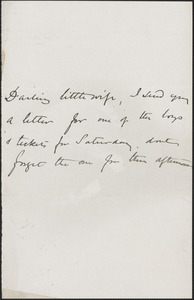 Darling little wife, I send you
a letter for one of the boys
& tickets for Saturday. dont
forget the one for this afternoon